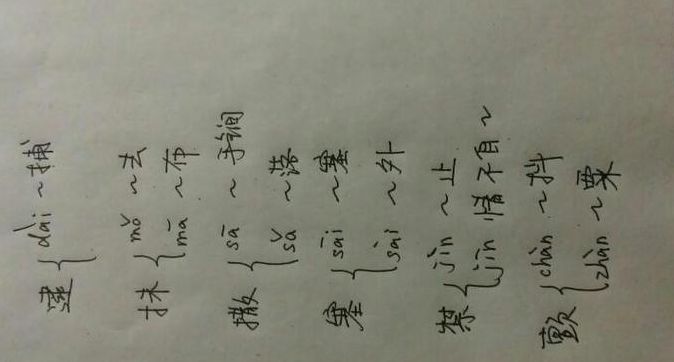 逮 { dài ~捕
抹 { mǒ ~去
mā ~布
撒 { sā ~手锏
sǎ ~落
塞 { sāi ~塞
sài ~外
禁 { jìn ~止
jīn 情不自~
颤 { chàn ~抖
zhàn ~栗